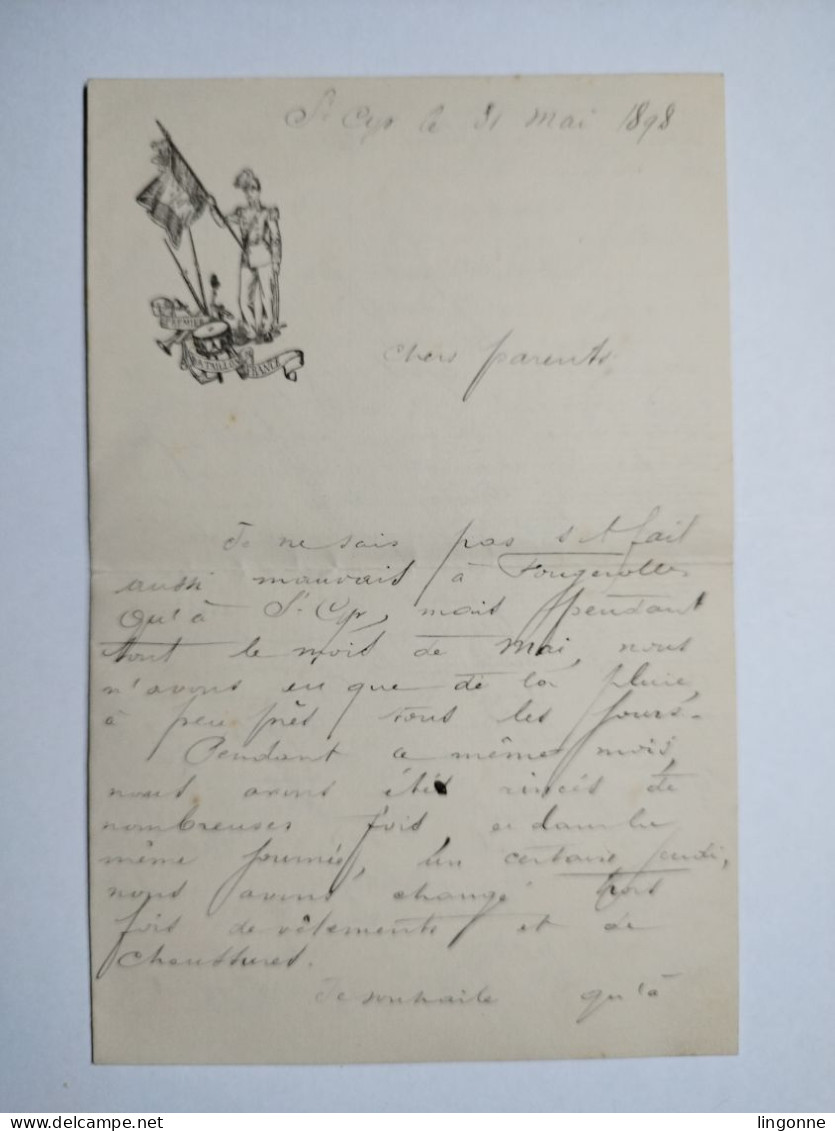 St Cyr le 31 mai 1898
PREMIER
BATAILLON
FRANCE
Chers parents,
Je ne sais pas s'il fait
aussi mauvais à Fougerolles
qu'à St-Cyr, mais pendant
tout le mois de mai, nous
n'avons eu que de la pluie,
à peu près tous les jours.
Pendant ce même mois,
nous avons étés rincés de
nombreuses fois et dans la
même journée, un certain jeudi,
nous avons changé trois
fois de vêtements et de
chaussures.
Je souhaite qu'à
lingonne